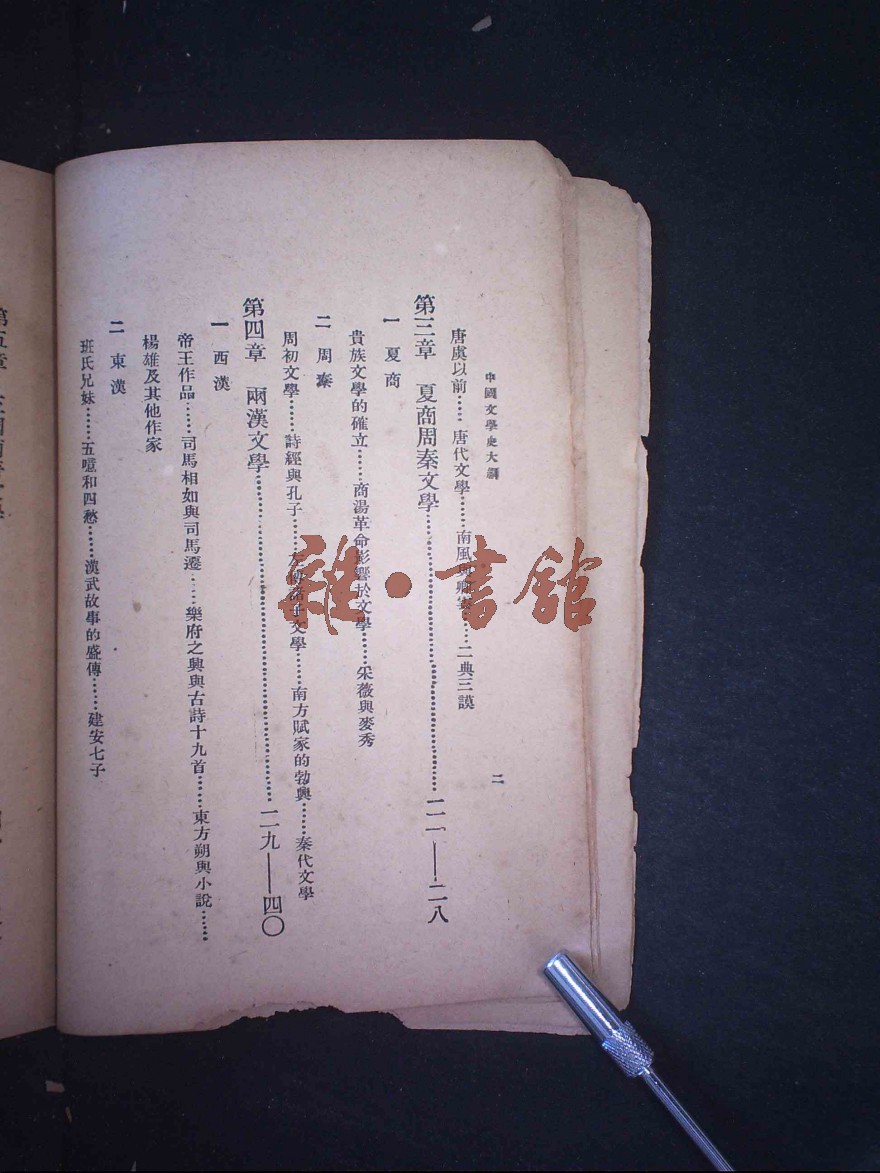 中國文學史大綱
二
唐虞以前……唐代文學……南風與卿雲……二典三謨
第三章　夏商周秦文學……二一——二八
一　夏商
貴族文學的確立……商湯革命影響於文學……采薇與麥秀
二　周秦
周初文學……詩經與孔子……左傳諸子文學……南方賦家的勃興……秦代文學
第四章　兩漢文學……二九——四〇
一　西漢
帝王作品……司馬相如與司馬遷……樂府之興與古詩十九首……東方朔與小說……
楊雄及其他作家
二　東漢
班氏兄妹……五噫和四愁……漢武故事的盛傳……建安七子
雜·書館